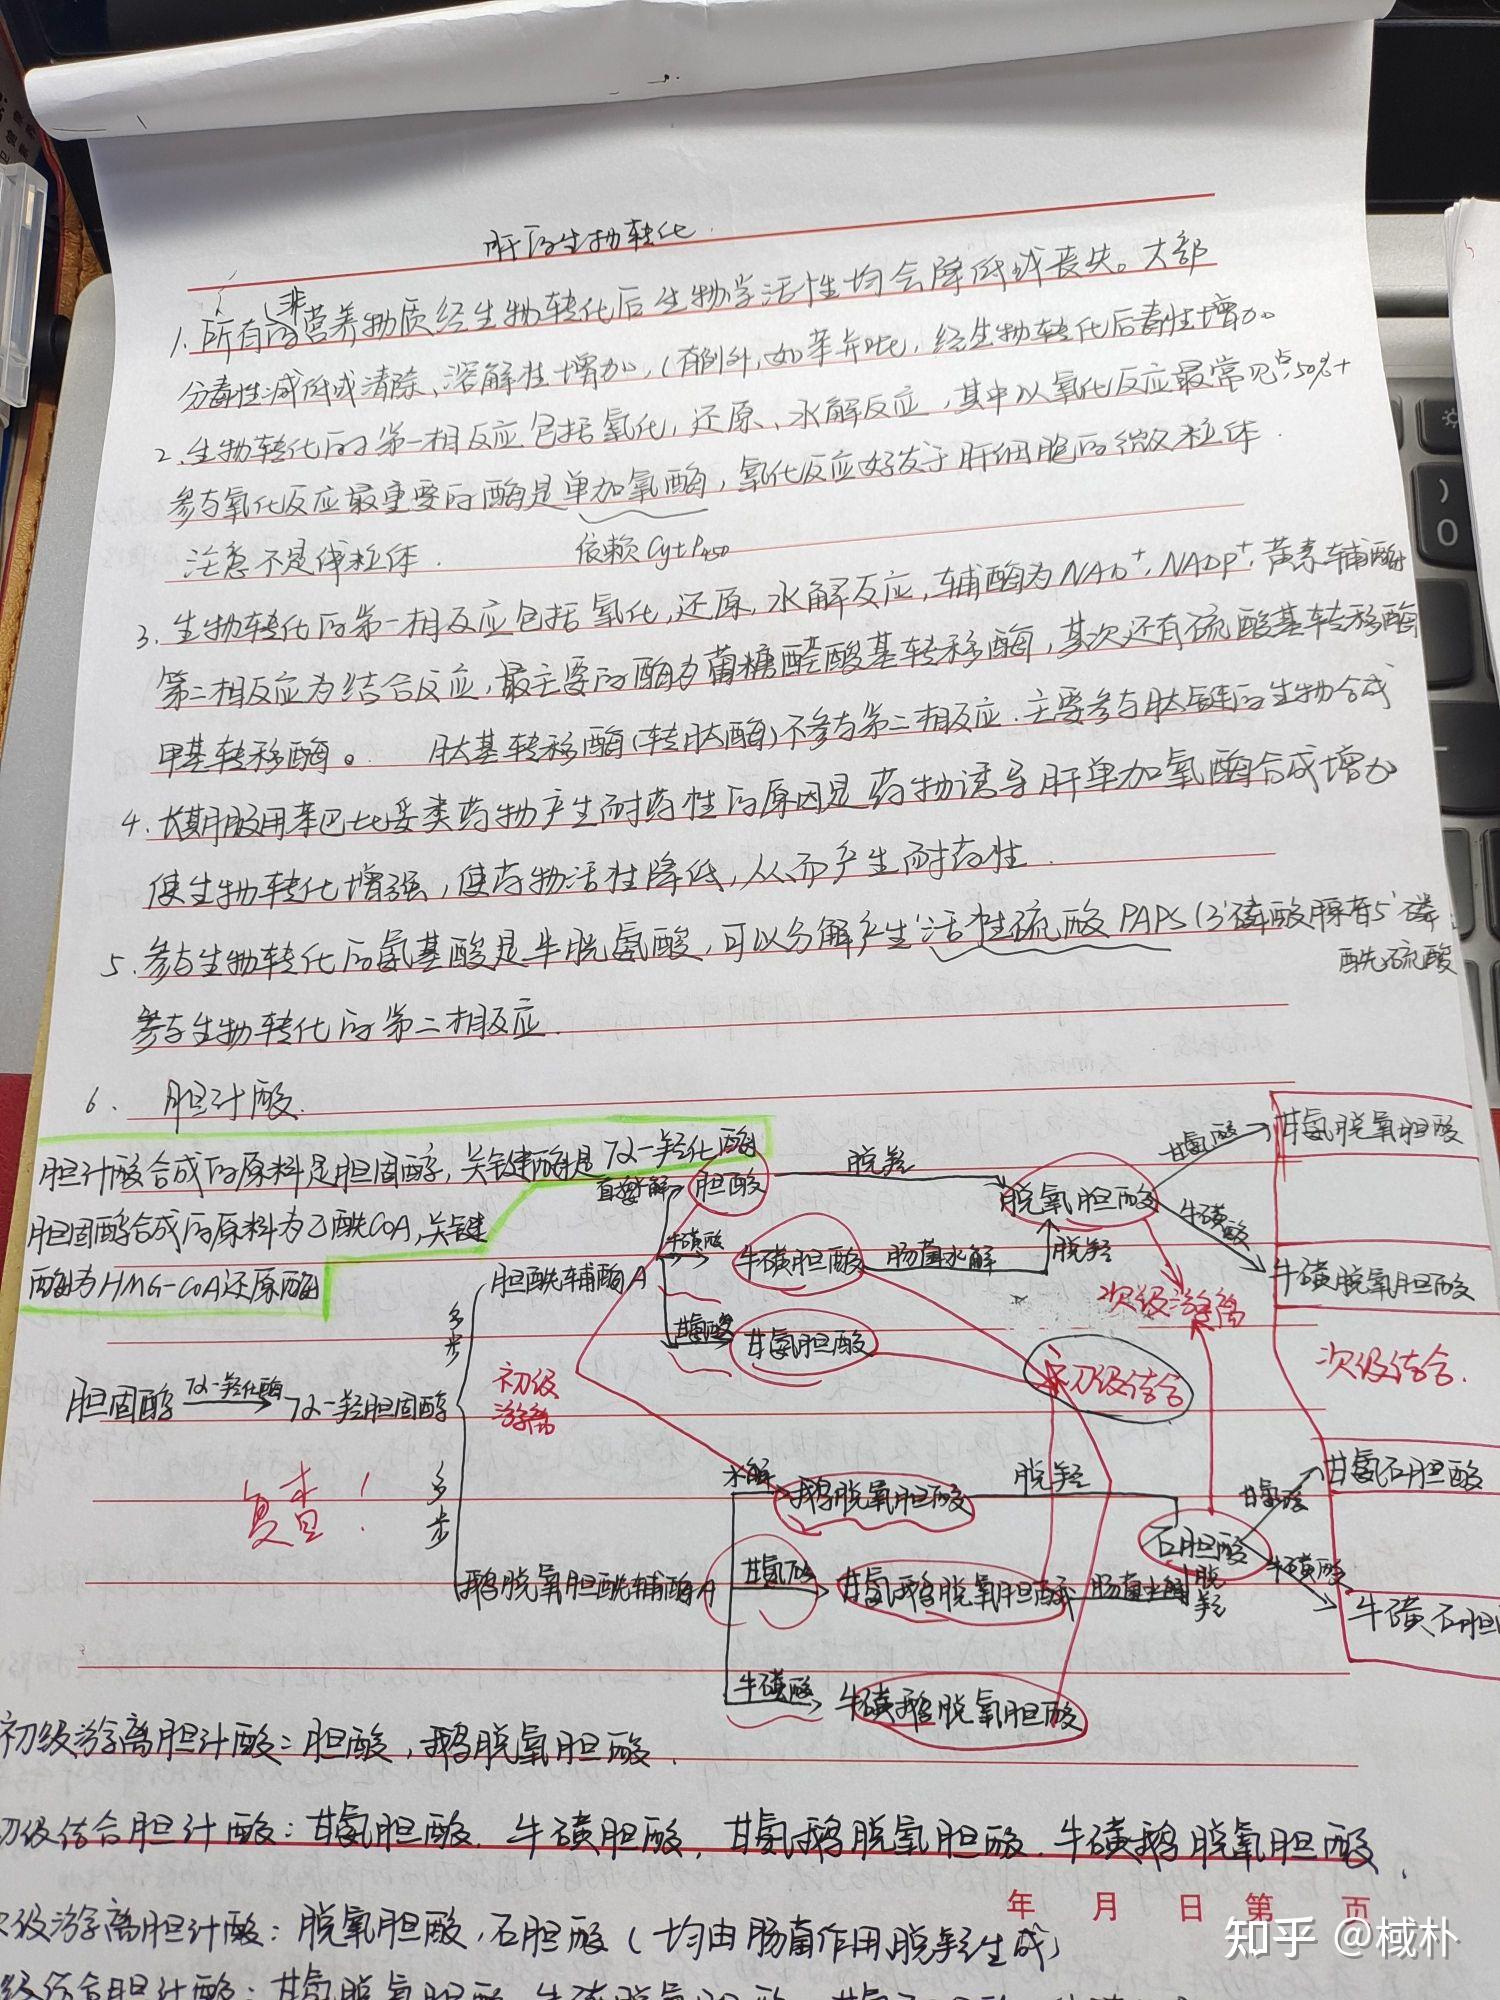 肝的生物转化
1. 所有的非营养物质经生物转化后生物学活性均会降低或丧失。大部
分毒性减低或清除、溶解性增加,(有例外,如苯并芘,经生物转化后毒性增加
2. 生物转化的第一相反应包括氧化,还原、水解反应,其中以氧化反应最常见占50%+
参与氧化反应最重要的酶是单加氧酶,氧化反应好发于肝细胞的微粒体.
注意不是线粒体. 依赖CytP450
3. 生物转化的第一相反应包括氧化,还原,水解反应,辅酶为NAD+、NADP+、黄素辅酶
第二相反应为结合反应,最主要的酶为葡糖醛酸基转移酶,其次还有硫酸基转移酶
甲基转移酶。 肽基转移酶(转肽酶)不参与第二相反应.主要参与肽键的生物合成
4. 长期服用苯巴比妥类药物产生耐药性的原因是药物诱导肝单加氧酶合成增加
使生物转化增强,使药物活性降低,从而产生耐药性.
5. 参与生物转化的氨基酸是半胱氨酸,可以分解产生活性硫酸PAPS(3'磷酸腺苷5'磷
酰硫酸
参与生物转化的第二相反应.
6. 胆汁酸.
胆汁酸合成的原料是胆固醇,关键酶是7α-羟化酶
胆固醇合成的原料为乙酰CoA,关键
酶为HMG-CoA还原酶
直接水解 胆酸 脱羟 脱氧胆酸 甘氨酸 甘氨脱氧胆酸
牛磺酸 牛磺胆酸 肠菌水解 脱羟 牛磺酸 牛磺脱氧胆酸
胆酰辅酶A
多步
甘氨酸 甘氨胆酸 次级游离
初级游离 初级结合 次级结合.
胆固醇 7α-羟化酶 7α-羟胆固醇
复查!
多步
水解 鹅脱氧胆酸 脱羟 石胆酸 甘氨酸 甘氨石胆酸
鹅脱氧胆酰辅酶A 甘氨酸 甘氨鹅脱氧胆酸 肠菌水解 脱羟 牛磺酸 牛磺石胆
牛磺酸 牛磺鹅脱氧胆酸
初级游离胆汁酸:胆酸,鹅脱氧胆酸.
初级结合胆汁酸:甘氨胆酸.牛磺胆酸,甘氨鹅脱氧胆酸.牛磺鹅脱氧胆酸.
年 月 日 第 页
次级游离胆汁酸:脱氧胆酸,石胆酸(均由肠菌作用脱羟生成)
级结合胆汁酸:甘氨脱氧胆酸
知乎 @棫朴